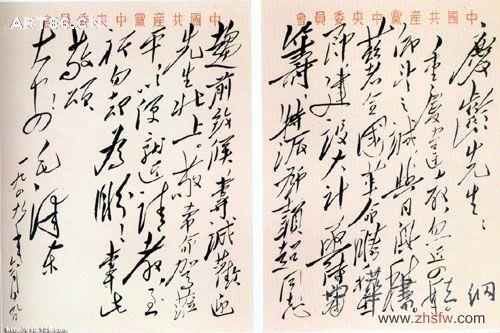 中國共產黨中央委員會
慶齡先生:
重慶違教,忽近四年,仰
望之誠,與日俱積。
茲者全國革命勝利在
即,建設大計,亟待商
籌,特派鄧穎超同志
中國共產黨中央委員會
趨前致候,專誠歡迎
先生北上。敬希命駕蒞
平,以便就近請教,至
祈勿却為盼!專此
敬頌
大安!毛澤東
一九四九年六月十九日
www.zhsfw.com